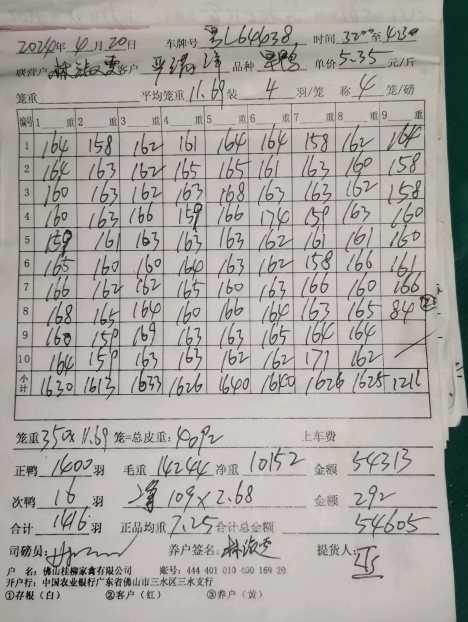 2024年4月20日 车牌号 粤L64638 时间 3200至4230
联营户 客户 品种 单价 5.35 元/斤
笼重 平均笼重 11.69 装 4 羽/笼 称 4 笼/磅
编号 1 重 2 重 3 重 4 重 5 重 6 重 7 重 8 重 9 重
1 164 158 162 161 164 164 158 162 164
2 164 163 162 165 165 161 163 160 158
3 160 163 162 163 168 163 163 162 158
4 160 163 166 159 166 174 159 163 160
5 159 161 163 163 163 162 161 161 160
6 165 160 160 164 163 162 158 166 161
7 166 162 162 165 160 163 166 160 166
8 168 165 164 160 166 164 163 165 84
9 160 159 169 163 163 165 164 164
10 164 159 163 163 162 162 171 162
小计 1630 1613 1633 1626 1640 1640 1626 1625 1211
笼重 350x11.69 笼=总皮重: 4092 上车费
正鸭 1400 羽 毛重 14244 净重 10152 金额 54313
次鸭 16 羽 净 109x2.68 金额 292
合计 1416 羽 正品均重 7.25 合计总金额 54605
司磅员: 养户签名: 提货人:
户 名: 佛山桂柳家禽有限公司 账号: 444 401 010 400 169 28
开户行: 中国农业银行广东省佛山市三水区三水支行
①存根(白) ②客户(红) ③养户(黄)